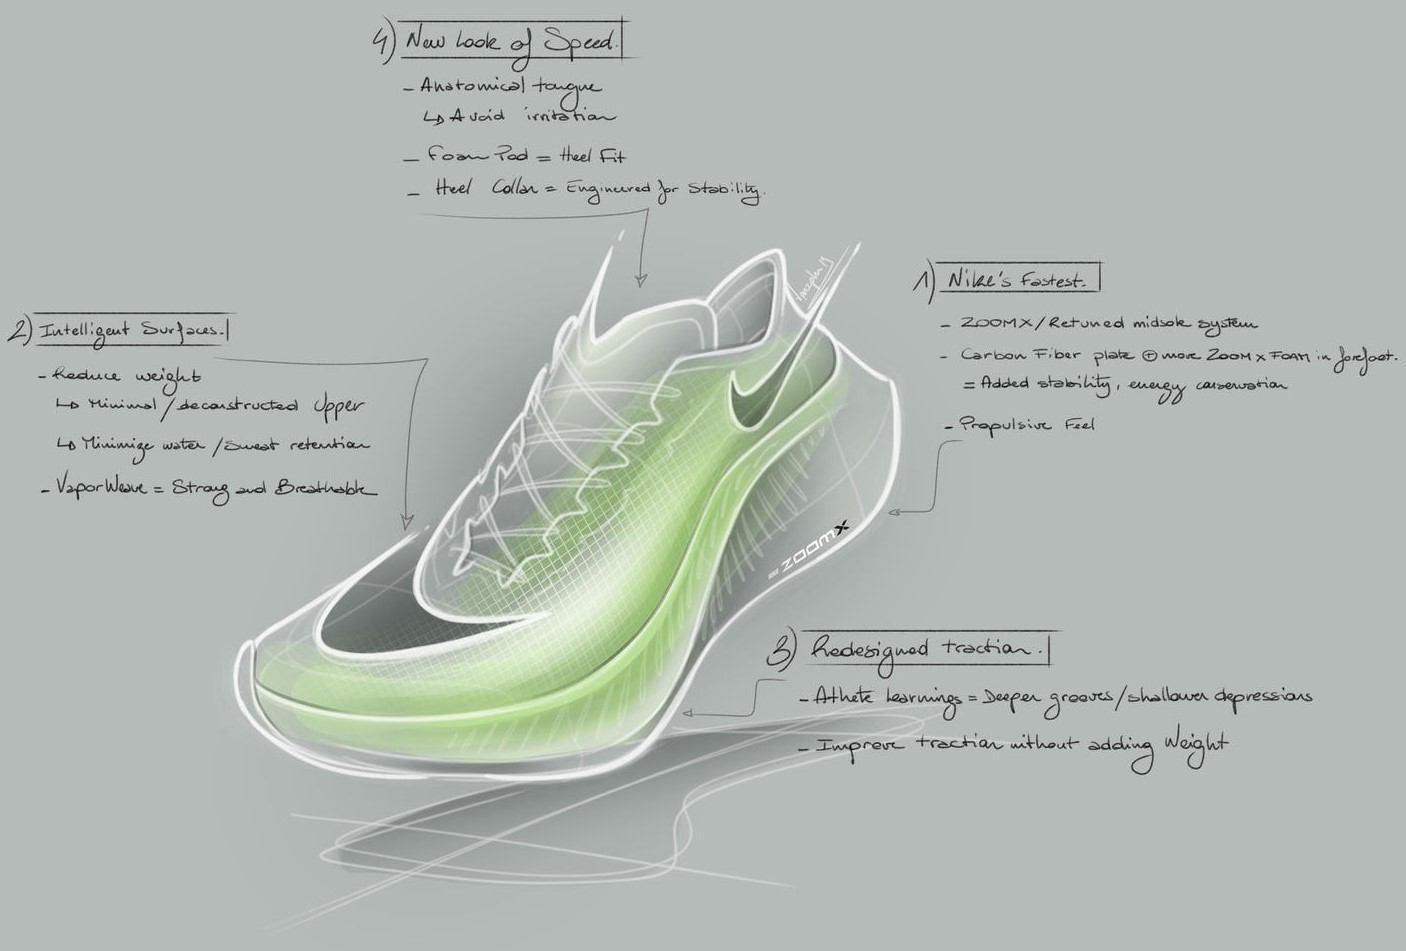 4) New Look of Speed.
- Anatomical tongue
↳ Avoid irritation
- Foam Pod = Heel Fit
- Heel Collar = Engineered for Stability.
1) Nike's Fastest.
- ZOOMX/Retuned midsole system
- Carbon Fiber plate ⊕ more ZOOMX FOAM in forefoot.
= Added stability, energy conservation
- Propulsive Feel
2) Intelligent Surfaces.
- Reduce weight
↳ Minimal/deconstructed Upper
↳ Minimize water/sweat retention
- VaporWeave = Strong and Breathable
ZOOMX
3) Redesigned traction.
- Athlete Learnings = Deeper grooves/shallower depressions
- Improve traction without adding Weight